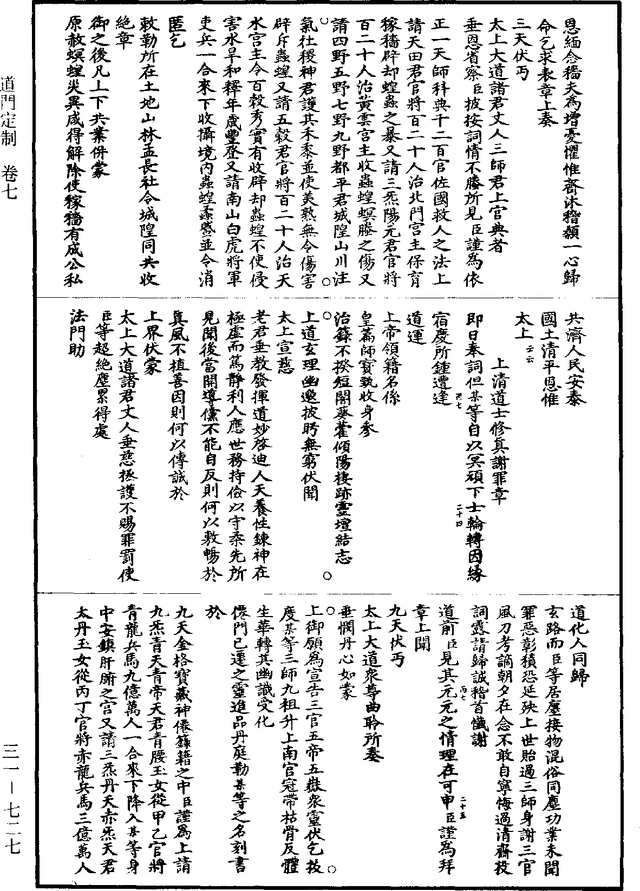 恩緬念穡夫為增憂懼惟齋沐稽顙一心歸
命乞求表章上奏
三天伏丐
太上大道諸君丈人三師君上官典者
垂恩省察臣披按詞情不勝所見臣謹為依
正一天師科典千二百官佐國救人之法上
請天田君官將百二十人治北門宮主保育
稼穡辟却蝗蟲之暴又請三炁陽元君官將
百二十人治黃雲宮主收蟲蝗螟螣之傷又
請四野五野七野九野都平君城隍山川注
氣社稷神君護其禾黍並使美熟無令傷害
辟斥蟲蝗又請五穀君官將百二十人治天
水宮主令百穀秀實有收辟却蟲蝗不使侵
害水旱和釋年歲豐登又請南山白虎將軍
吏兵一合來下收攝境內蟲蝗並令消
匿乞
敕勒所在土地山林孟長社令城隍同共收
絶章
御之後凡上下共業併蒙
原赦螟蝗災異咸得解除使稼穡有成公私
共濟人民安泰
國土清平恩惟
太上云云
上清道士修真謝罪章
即日奉詞但某等自以冥頑下士輪轉因緣
宿慶所鍾遭逢
道運
上帝領籍名係
皇篇師寶執收身參
治籙不揆短闇葵藿傾陽棲跡靈壇結志
上道玄理幽邈披眄無窮伏聞
太上宣慈
老君垂教發揮道妙啓迪人天養性鍊神在
極虛而篤靜利人應世務持儉以守柔先所
見聞後當開導儻不能自反則何以敷暢於
真風不植善因則何以傳誠於
上界伏蒙
太上大道諸君丈人垂慈拯護不賜罪罰使
臣等超絶塵累得處
法門助
道化人同歸
玄路而臣等居塵接物混俗同塵功業未聞
罪惡彰積恐延殃上世胎過三師身謝三官
風刀考謫朝夕在念不敢自寧悔過清齋投
詞露請歸誠稽首懺謝
道前臣見其元元之情理在可申臣謹為拜
章上聞
九天伏丐
太上大道衆尊曲聆所奏
垂憫丹心如蒙
上御願為宣告三官五帝五嶽衆靈伏乞拔
度某等三師九祖升上南宮冠帶枯骨反體
生華轉其幽識受化
僊門已遷之靈進品丹庭勒某等之名刻書
於
九天金格寶藏神僊籙籍之中臣謹為上請
九炁青天青帝天君青腰玉女從甲乙官將
青龍兵馬九億萬人一合來下降入某等身
中安鎮肝腑之宮又請三炁丹天赤炁天君
太丹玉女從丙丁官將赤龍兵馬三億萬人
丙七
二十四
丙七
二十五
道門定制　卷七
三一—七二七